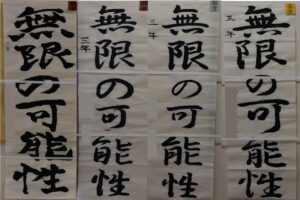 無限の可能性
三年
無限の可能性
無限の可能性
三年
無限の可能性